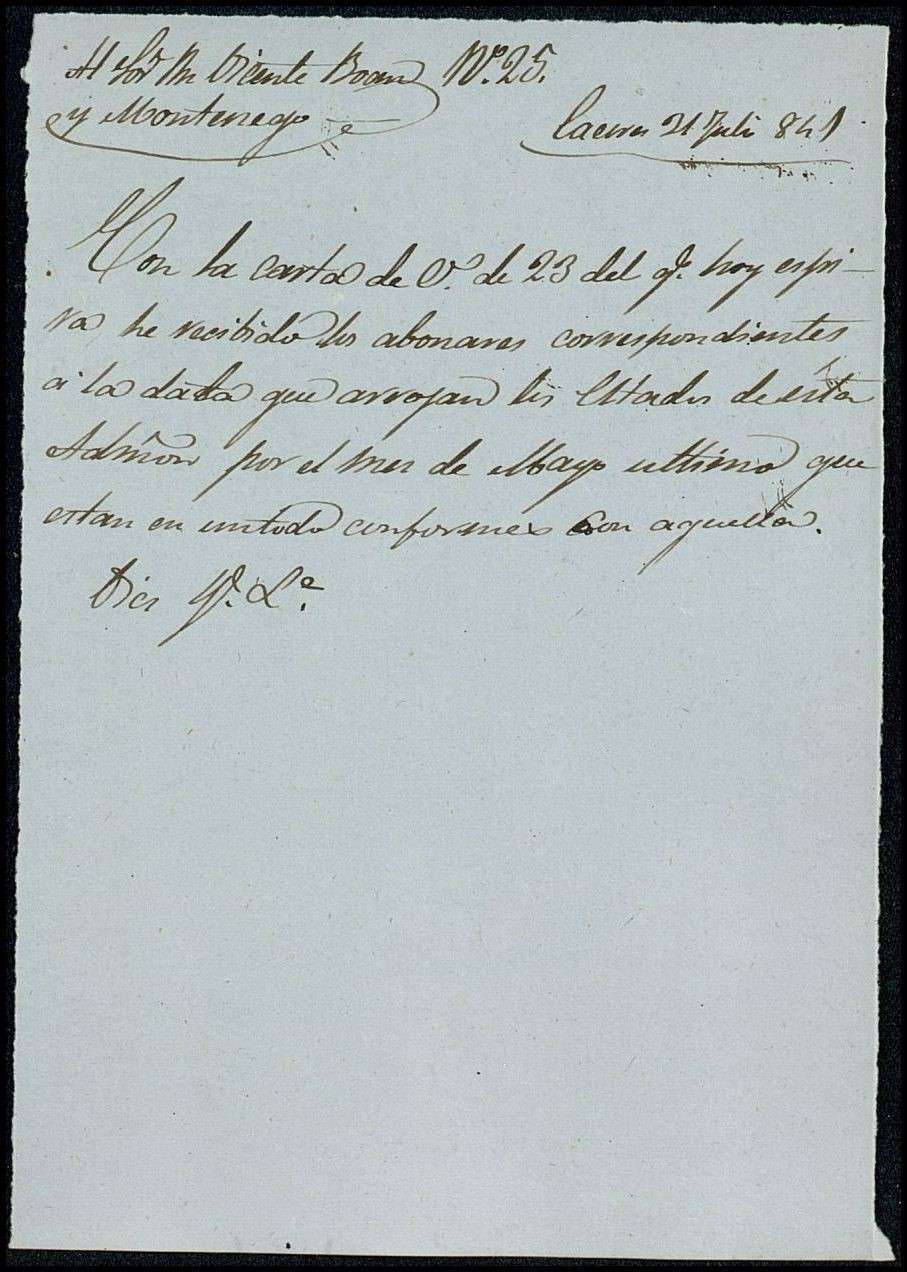 Al Sor Dn Vicente Boan Nº. 25.
y Montenego
Caceres 21 Juli 841
Con la carta de V. de 23 del q. hoy espi-
ra he recibido los abonares correspondientes
a la data que arrojan los Estados de esta
Admon por el mes de Mayo ultimo que
estan en untodo conformes con aquella.
Dios